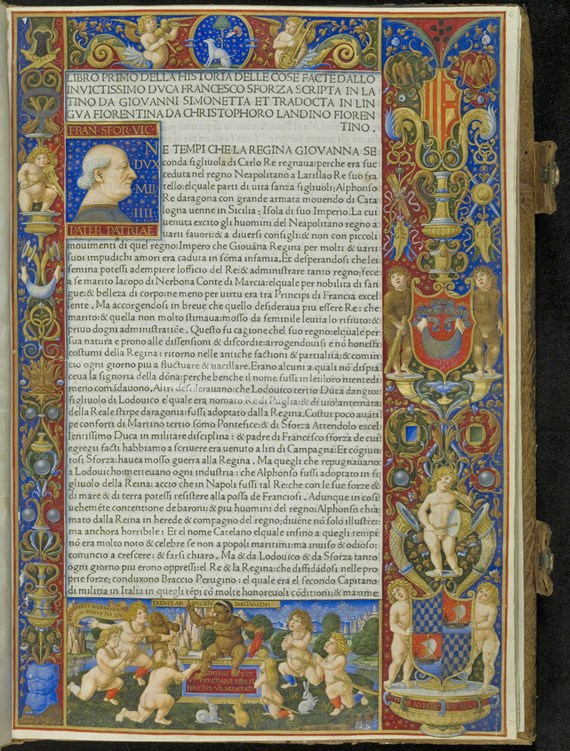 LIBRO PRIMO DELLA HISTORIA DELLE COSE FACTE DALLO
INVICTISSIMO DVCA FRANCESCO SFORZA SCRIPTA IN LA
TINO DA GIOVANNI SIMONETTA ET TRADOCTA IN LIN
GVA FIORENTINA DA CHRISTOPHORO LANDINO FIOREN
TINO.
FRAN SFOR VIC
DVX
MLI
IIII
PATER PATRIAE
NE TEMPI CHE LA REGINA GIOVANNA SE
conda figliuola di Carlo Re regnaua: perche era suc
ceduta nel regno Neapolitano a Larislao Re suo fra
tello: elquale parti di uita sanza figliuoli: Alphonso
Re daragona con grande armata mouendo di Cata
logna uenne in Sicilia: Isola di suo Imperio. La cui
uenuta excito gli huomini del Neapolitano regno a
uarii fauori: & a diuersi consigli: & non con piccoli
mouimenti di quel regno: Impero che Giouãna Regina per molti & uarii
suoi impudichi amori era caduta in sõma infamia. Et desperandosi che lei
femina potessi adempiere lofficio del Re: & administrare tanto regno: fece
a se marito Iacopo di Nerbona Conte di Marcia: elquale per nobilita di san
gue: & belleza di corpo: ne meno per uirtu era tra Principi di Francia excel
lente. Ma accorgendosi in breue che quello desideraua piu essere Re: che
marito: & quella non molto stimaua: mosso da feminile leuita lo rifiuto: &
priuo dogni administratiõe. Questo fu cagione chel suo regno: elquale per
sua natura e prono alle dissensioni & discordie: arrogendouisi e nõ honesti
costumi della Regina: ritorno nelle antiche factioni & partialita: & comin
cio ogni giorno piu a fluctuare & uacillare. Erano alcuni a quali nõ dispia
ceua la signoria della dõna: perche benche il nome fussi in lei: loro intera
mente comãdauono. Altri desiderauano che Lodouico tertio Duca dangio:
figliuolo di Lodouico el quale era nomato Re di Puglia: & di uiolante nata
della Reale stirpe daragonia: fussi adoptato dalla Regina. Costui poco auãti
pe conforti di Martino tertio sõmo Pontefice: & di Sforza Attendolo excel
lentissimo Duca in militare disciplina: & padre di Francesco sforza de cui
egregii facti habbiamo a scriuere era uenuto a liti di Campagna: Et cõgiun
tosi Sforza: hauea mosso guerra alla Regina. Ma quegli che repugnauano
a Lodouico: metteuano ogni industria: che Alphonso fussi adoptato in fi
gliuolo della Reina: accio che in Napoli fussi tal Re: che con le sue forze &
di mare & di terra potessi resistere alla possa de Franciosi. Adunque in cosi
uehemẽte contentione de baroni: & piu huomini del regno: Alphonso chia
mato dalla Reina in herede & compagno del regno: diuẽne nõ solo illustre:
ma anchora horribile: Et el nome Catelano equale insino a quegli tempi
nõ era molto noto & celebre se non a popoli maritimi: ma inuiso & odioso:
comincio a crescere: & farsi chiaro. Ma & da Lodouico & da Sforza tanto
ogni giorno piu erono oppressi: el Re & la Regina: che diffidãdosi nelle pro
prie forze: conduxono Braccio Perugino: el quale era el secondo Capitano
di militia in Italia in quegli tẽpi: cõ molte honoreuoli cõditioni: & maxime